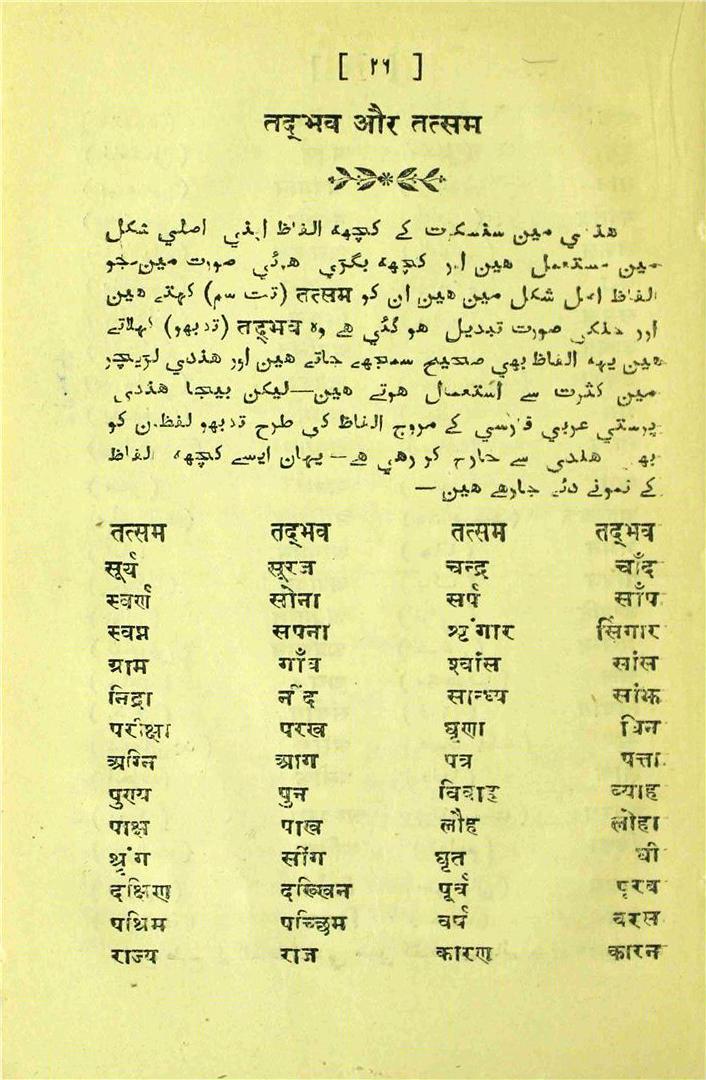 [ ۲۶ ]
तद्भव और तत्सम
هندي مين سنسكرت كے كچهه الفاظ اپني اصلي شكل
مين مستعمل هين اور كچهه بگڑي هوئي صورت مين-جو
الفاظ اصل شكل مين هين ان كو तत्सम (تت سم) كہتے هين
اور جنكي صورت تبديل هو گئي هے وہ तद्भव (تدبهو) كہلاتے
هين يہه الفاظ بهي صحيح سمجهے جاتے هين اور هندي لڑيچر
مين كثرت سے استعمال هوتے هين—ليكن بيجا هندي
پرستي عربي فارسي كے مروج الفاظ كى طرح تدبهو لفظون كو
بهي هندي سے خارج كر رهي هے—يہان ايسے كچهه الفاظ
كے نمونے دئے جارهے هين—
तत्सम तद्भव तत्सम तद्भव
सूर्य सूरज चन्द्र चाँद
स्वर्ण सोना सर्प साँप
स्वप्न सपना श्रृंगार सिंगार
ग्राम गाँव श्वांस सांस
निद्रा नींद सान्ध्य सांझ
परीक्षा परख घृणा घिन
अग्नि आग पत्र पत्ता
पुण्य पुन विवाह ब्याह
पाक्ष पाख लौह लोहा
श्रृंग सींग घृत घी
दक्षिण दख्खिन पूर्व पूरब
पश्चिम पच्छिम वर्ष बरस
राज्य राज कारण कारन